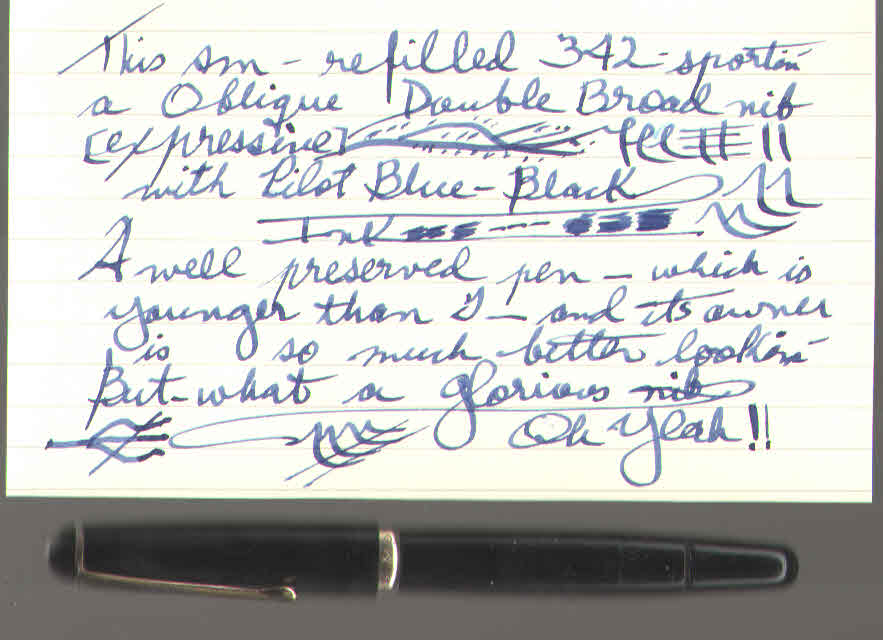 This sm - refilled 342 - sportin
a Oblique Double Broad nib
[expressive]
with Pilot Blue-Black
Ink
A well preserved pen - which is
younger than I - and its owner
is so much better lookin
But - what a glorious nib
Oh Yeah!!